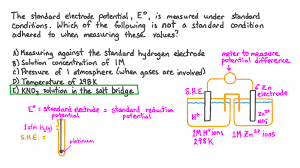 The standard electrode potential, E°, is measured under standard
conditions. Which of the following is not a standard condition
adhered to when measuring these values?
A) Measuring against the standard hydrogen electrode
B) Solution concentration of 1M
C) Pressure of 1 atmosphere (when gases are involved)
D) Temperature of 298K
E) KNO₃ solution in the salt bridge.
meter to measure
potential difference
E° = standard electrode potential = standard reduction
potential
1atm H₂(g)
S.H.E. =
platinum
S.H.E.
Zn
electrode
H⁺
Zn²⁺
1M H⁺ ions
298K
1M Zn²⁺ ions